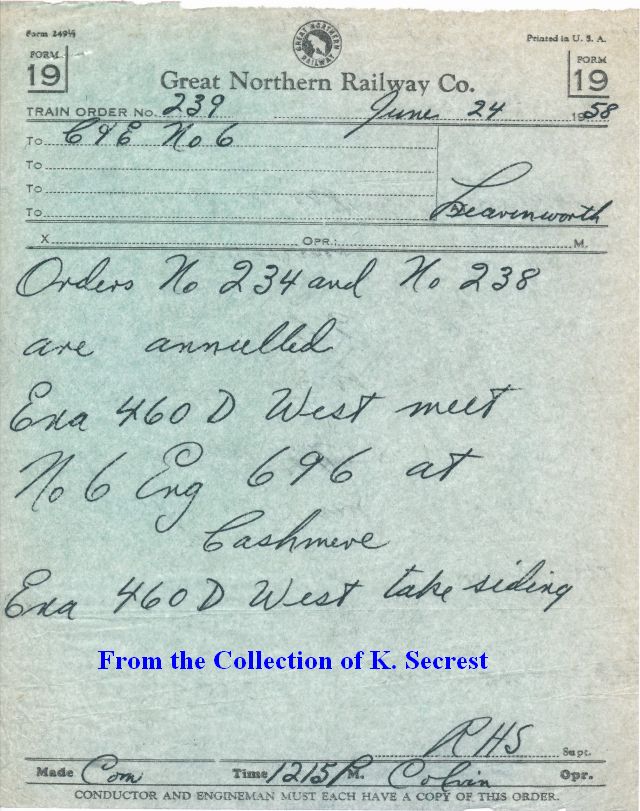 Form 249½
Printed in U. S. A.
GREAT NORTHERN RAILWAY
FORM 19
FORM 19
Great Northern Railway Co.
TRAIN ORDER No. 239 June 24 1958
To C&E No 6
To
To
To
At Leavenworth
X OPR.: M.
Orders No 234 and No 238
are annulled
Exa 460 D West meet
No 6 Eng 696 at
Cashmere
Exa 460 D West take siding
From the Collection of K. Secrest
RHS Supt.
Made Com Time 1215 P M. Colvin Opr.
CONDUCTOR AND ENGINEMAN MUST EACH HAVE A COPY OF THIS ORDER.